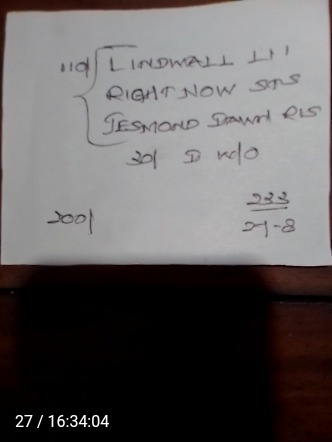 110/ LINDWALL
RIGHT NOW
JESMOND DAWN
30/ D W/O
200/ 233
21-8
27 / 16:34:04